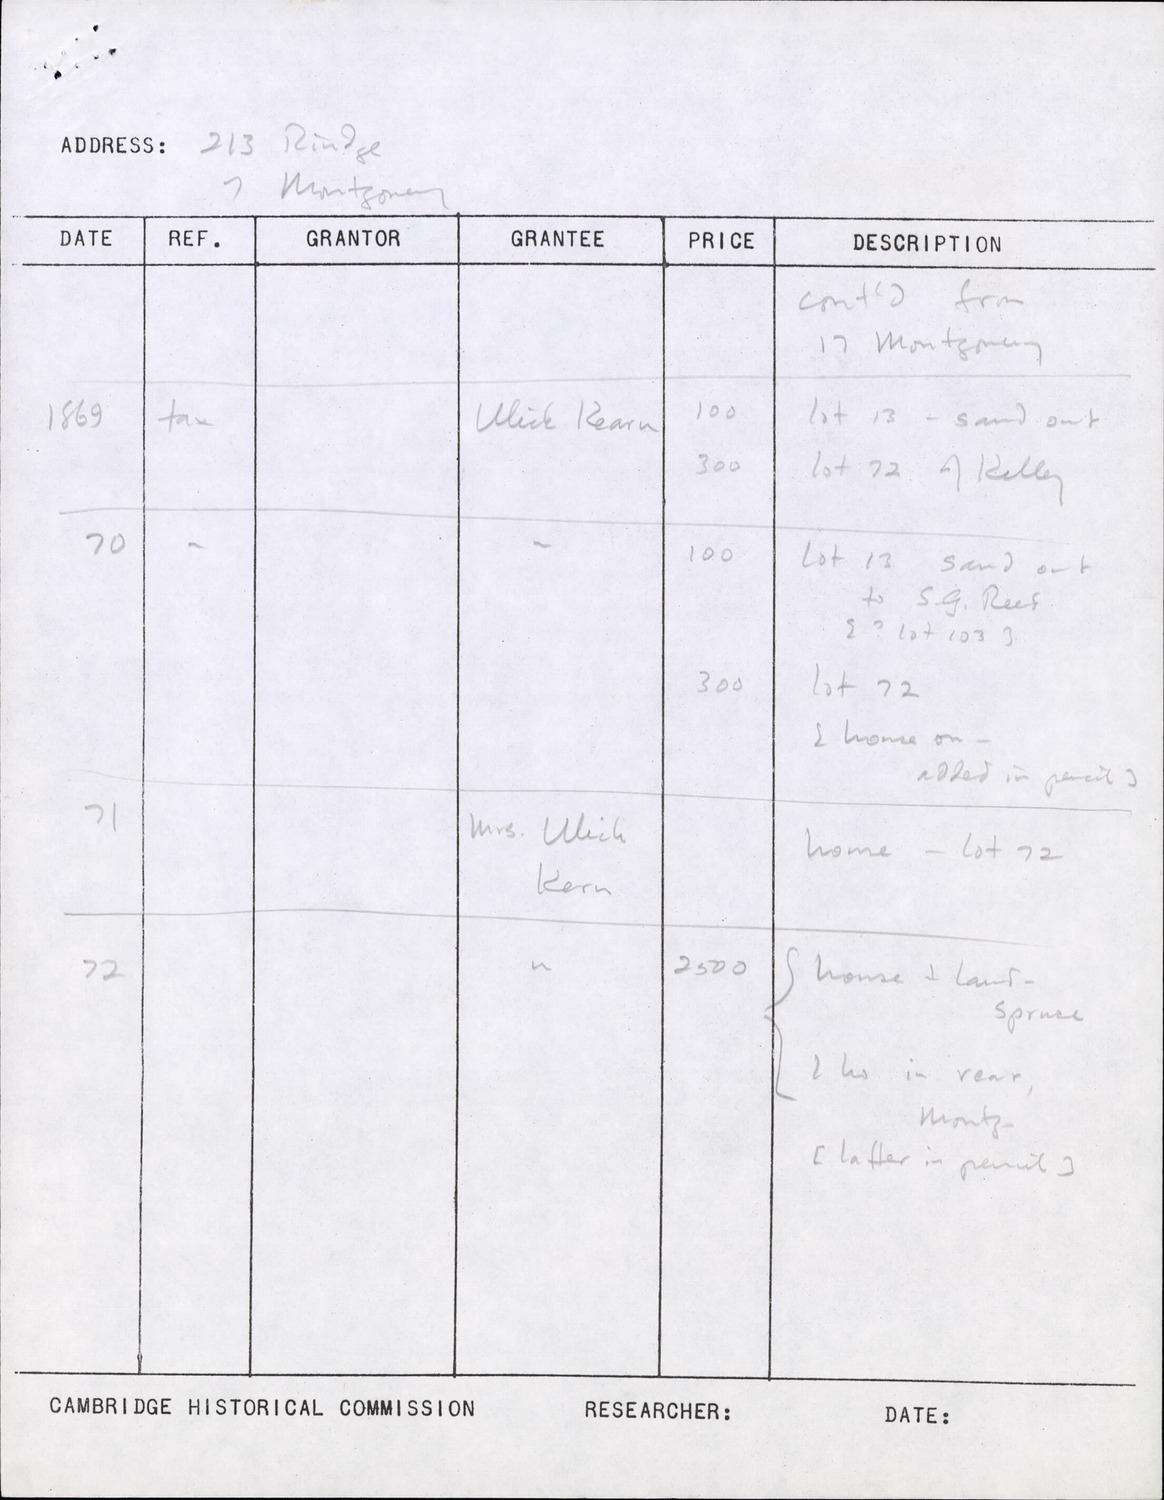 ADDRESS: 213 Rindge
7 Montgomery
DATE REF. GRANTOR GRANTEE PRICE DESCRIPTION
cont'd from
17 Montgomery
1869 tax Ulick Kearn 100 lot 13 - sand out
300 lot 72 of Kelley
70 " " 100 Lot 13 sand out
to S.G. Rees
[? lot 103]
300 lot 72
[house on -
added in pencil]
71 Mrs. Ulick home - lot 72
Kern
72 " 2500 { house & land -
Spruce
[ho in rear,
Montg.
[latter in pencil]
CAMBRIDGE HISTORICAL COMMISSION RESEARCHER: DATE: